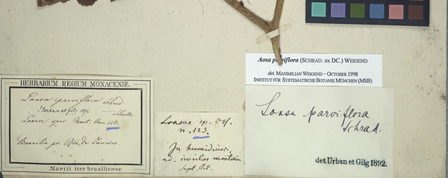 Aosa parviflora (SCHRAD. ex DC.) WEIGEND
det. MAXIMILIAN WEIGEND – OCTOBER 1998
INSTITUT FÜR SYSTEMATISCHE BOTANIK MÜNCHEN (MSB)
HERBARIUM REGIUM MONACENSE.
Loasa parviflora Schrad
Brasilia pr. Rio de Janeiro
Martii Herb. brasiliense.
Loasae sp.
n. 123.
In humidius.
ad rivulos montium
Sept. Oct.
Loasa parviflora
Schrad.
det. Urban et Gilg 1892.